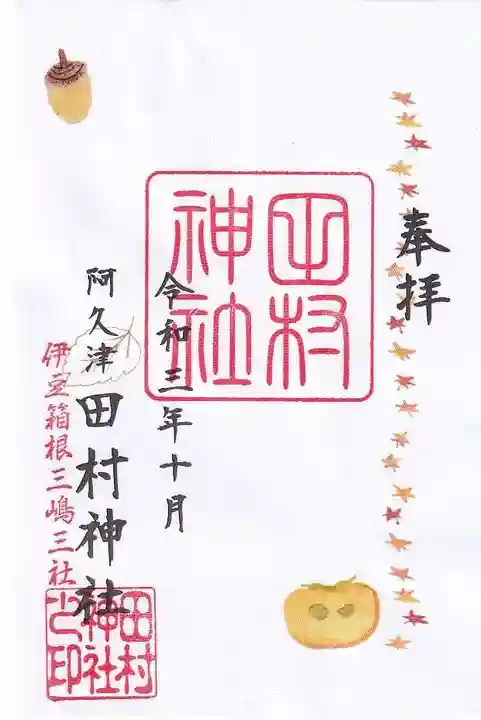 奉拝
田村
神社
令和三年十月
阿久津田村神社
伊豆箱根三嶋三社
田村
神社
之印